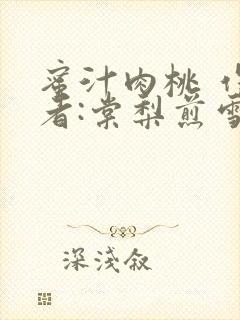 蜜汁肉桃 作
者:棠梨煎雪
深淺叙